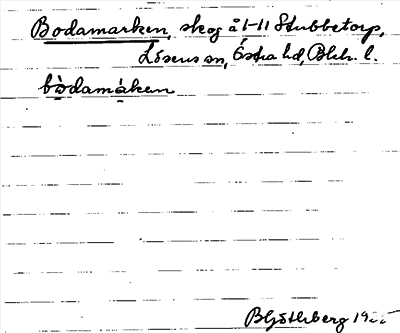 Bodamarken, skog å 1-11 Stubbetorp,
Lösens sn, Östra hd, Blek. l.
bòdamàrken
B Götlberg 19